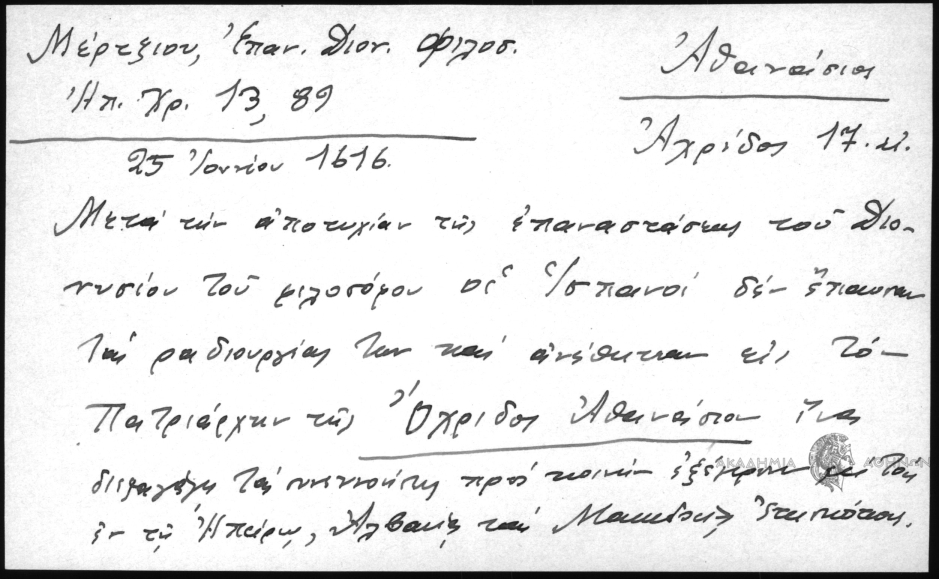 Μέρτζιου, Ἐπαν. Διον. Φιλοσ.
Ἠπ. Χρ. 13, 89
Ἀθανάσιος
Ἀχρίδος 17. αἰ.
25 Ἰουνίου 1616.
Μετά τήν ἀποτυχίαν τῆς ἐπαναστάσεως τοῦ Διο-
νυσίου τοῦ φιλοσόφου οἱ Ἱσπανοί δέν ἔπαυσαν
τάς ραδιουργίας των καί ἀνέθεσαν εἰς τόν
Πατριάρχην τῆς Ὀχρίδος Ἀθανάσιον ἵνα
διεξαγάγῃ τάς συνεννοήσεις πρός κοινήν ἐξέγερσιν μέ τούς
ἐν τῇ Ἠπείρῳ, Ἀλβανίᾳ καί Μακεδονίᾳ ἐπισκόπους.
ΑΚΑΔΗΜΙΑ ΑΘΗΝΩΝ